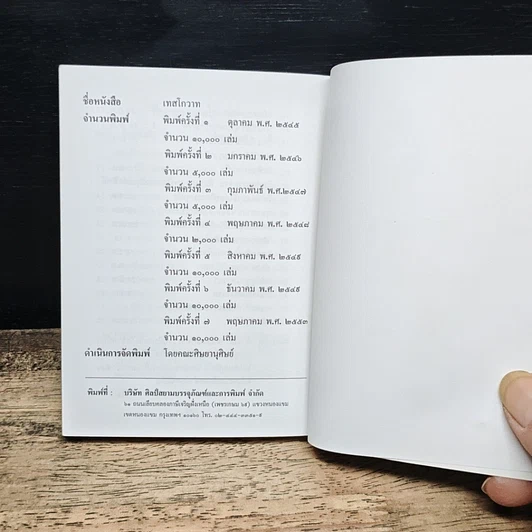 ชื่อหนังสือ เทสโกวาท
จำนวนพิมพ์ พิมพ์ครั้งที่ ๑ ตุลาคม พ.ศ. ๒๕๔๕
จำนวน ๑๐,๐๐๐ เล่ม
พิมพ์ครั้งที่ ๒ มกราคม พ.ศ. ๒๕๔๖
จำนวน ๕,๐๐๐ เล่ม
พิมพ์ครั้งที่ ๓ กุมภาพันธ์ พ.ศ.๒๕๔๗
จำนวน ๕,๐๐๐ เล่ม
พิมพ์ครั้งที่ ๔ พฤษภาคม พ.ศ. ๒๕๔๘
จำนวน ๒,๐๐๐ เล่ม
พิมพ์ครั้งที่ ๕ สิงหาคม พ.ศ. ๒๕๔๙
จำนวน ๑๐,๐๐๐ เล่ม
พิมพ์ครั้งที่ ๖ ธันวาคม พ.ศ. ๒๕๔๙
จำนวน ๑๐,๐๐๐ เล่ม
พิมพ์ครั้งที่ ๗ พฤษภาคม พ.ศ. ๒๕๕๓
จำนวน ๑๐,๐๐๐ เล่ม
ดำเนินการจัดพิมพ์ โดยคณะศิษยานุศิษย์
พิมพ์ที่ : บริษัท ศิลป์สยามบรรจุภัณฑ์และการพิมพ์ จำกัด
๖๑ ถนนเลียบคลองภาษีเจริญฝั่งเหนือ (เพชรเกษม ๖๙) แขวงหนองแขม
เขตหนองแขม กรุงเทพฯ ๑๐๑๖๐ โทร. ๐๒-๔๔๔-๓๓๕๑-๙